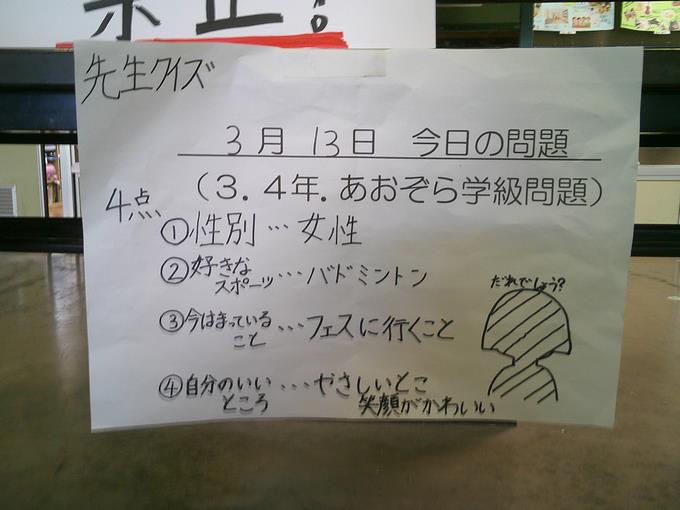 禁止!
先生クイズ
3月13日 今日の問題
(3.4年.あおぞら学級問題)
4点
①性別…女性
②好きなスポーツ…バドミントン
③今はまっていること…フェスに行くこと
④自分のいいところ…やさしいとこ
笑顔がかわいい
だれでしょう?